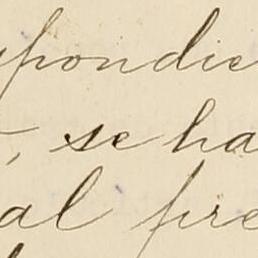 pondie
, se ha
al pre